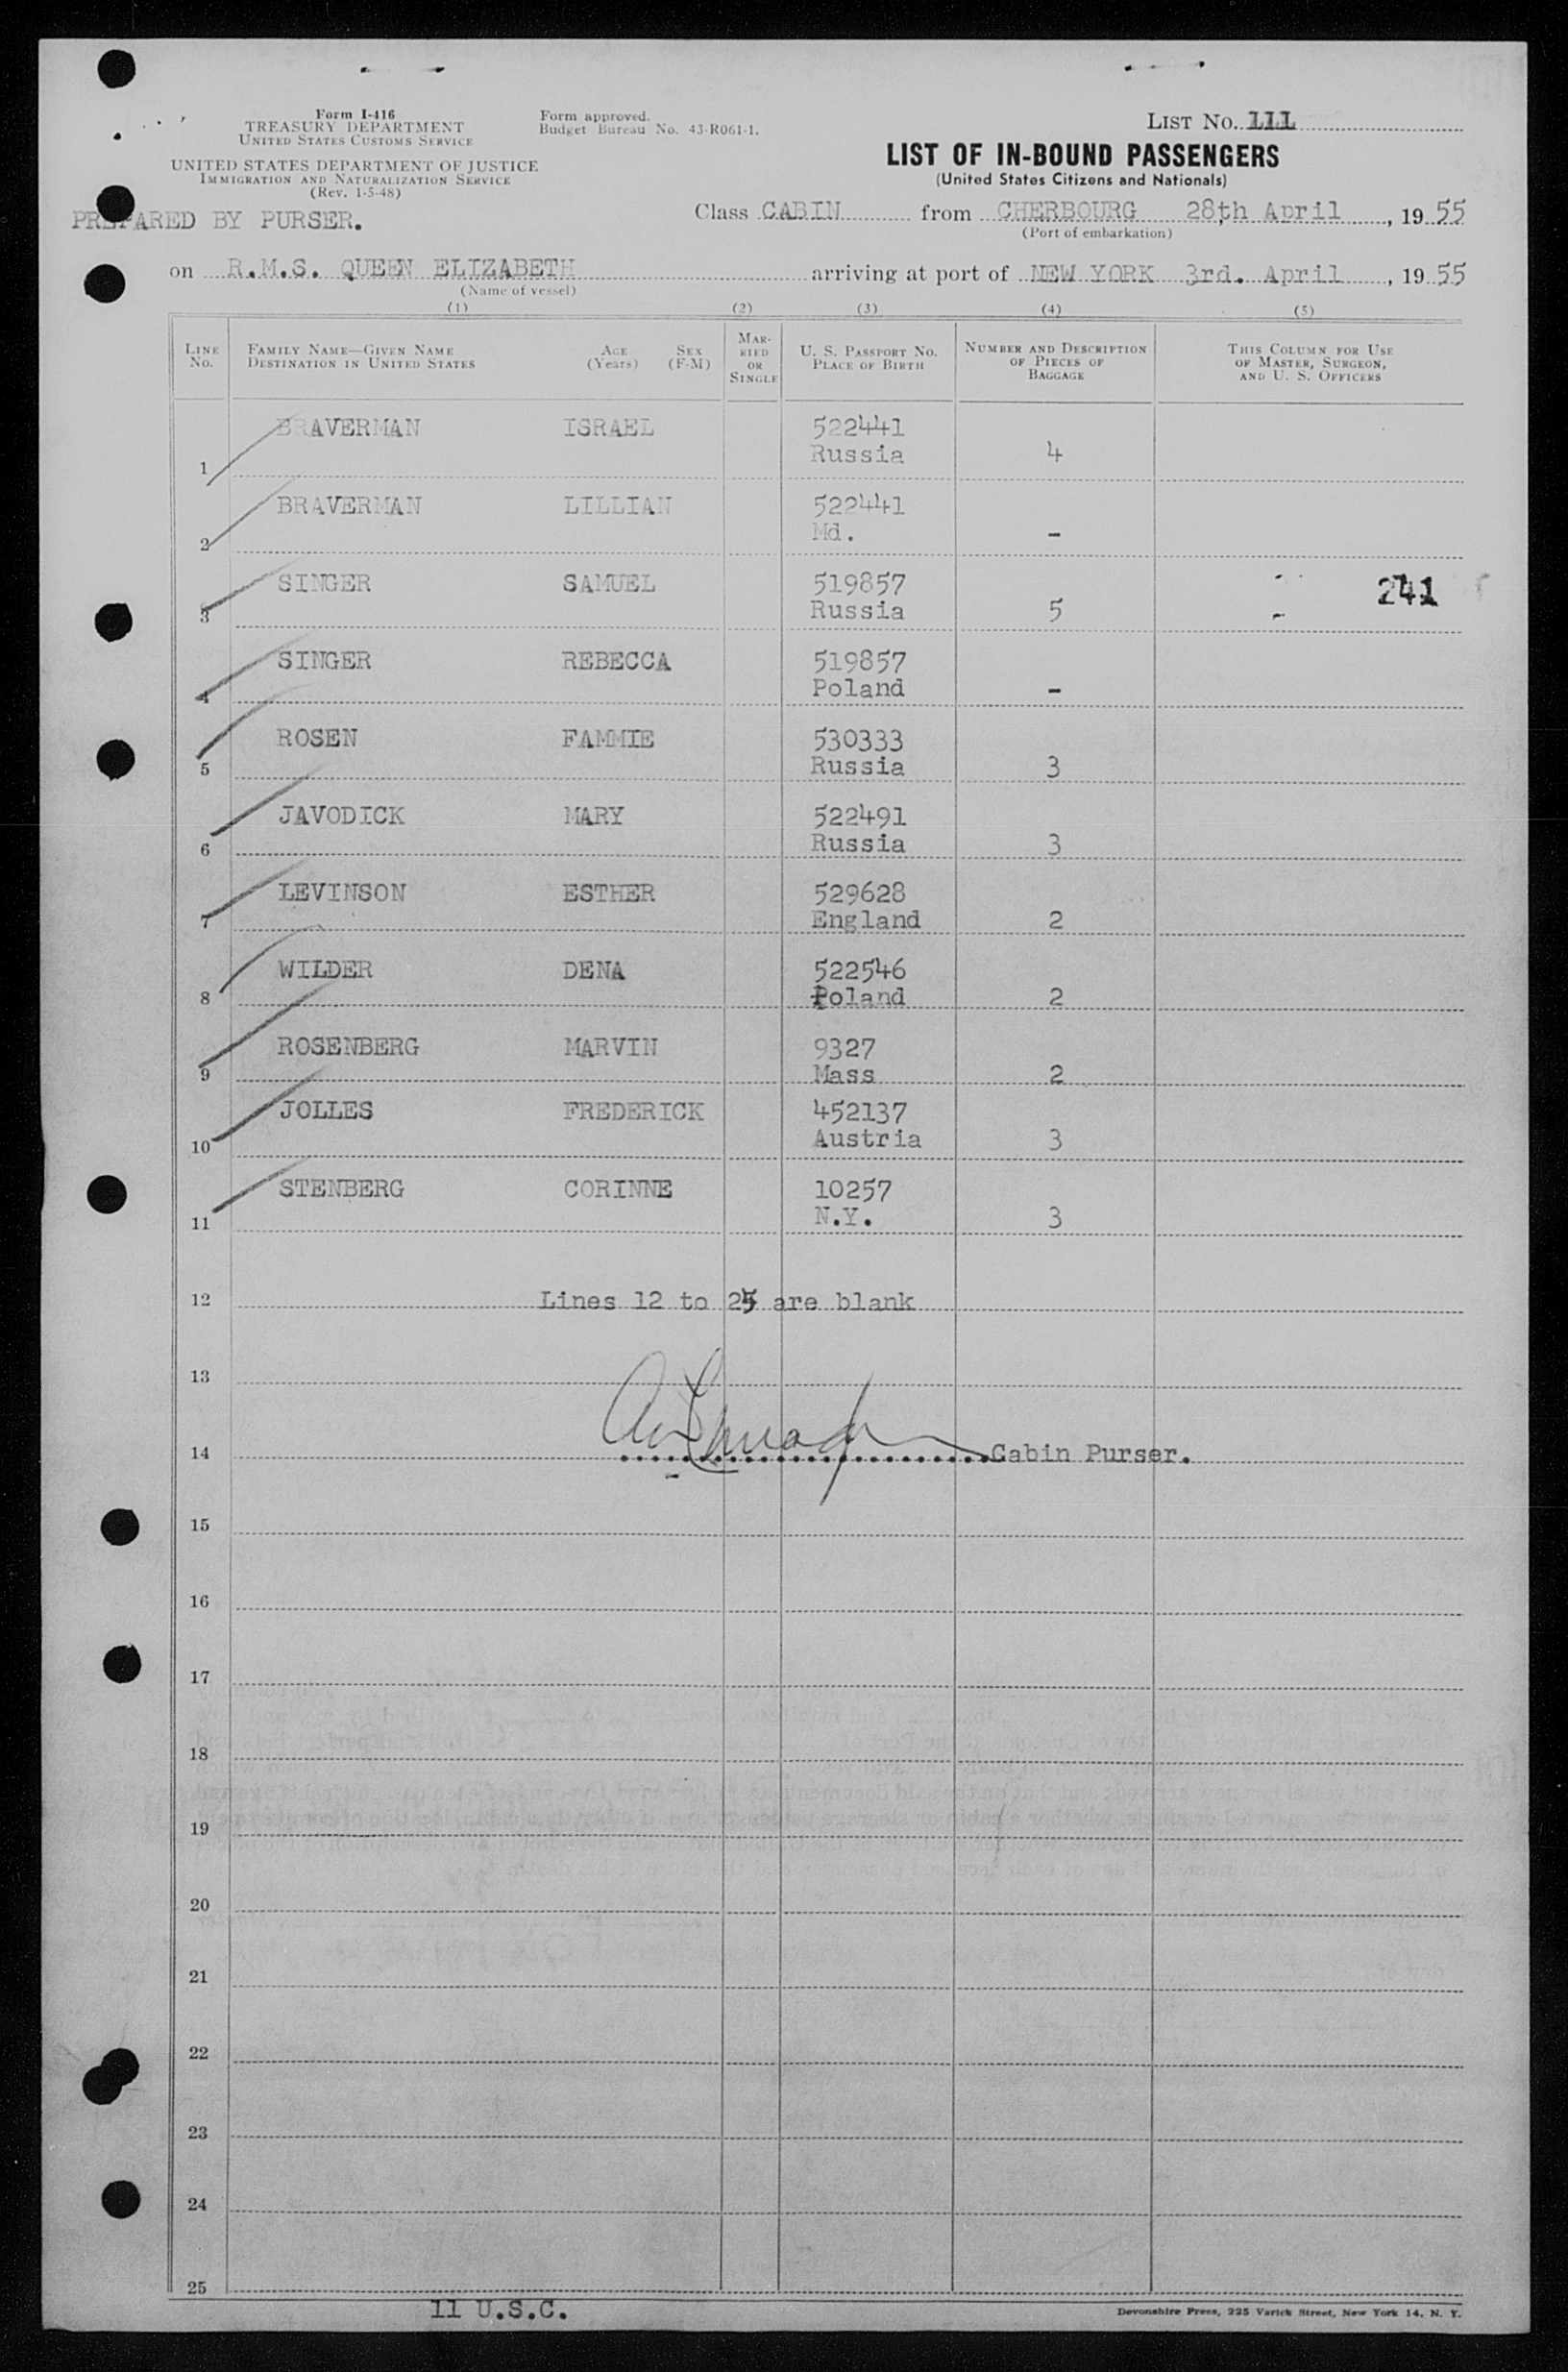 Form I-416
TREASURY DEPARTMENT
UNITED STATES CUSTOMS SERVICE
UNITED STATES DEPARTMENT OF JUSTICE
IMMIGRATION AND NATURALIZATION SERVICE
(Rev. 1-5-48)
PREPARED BY PURSER.
Form approved.
Budget Bureau No. 43-R061-1.
LIST NO. 111
LIST OF IN-BOUND PASSENGERS
(United States Citizens and Nationals)
Class CABIN from CHERBOURG 28th April, 1955
(Port of embarkation)
on R.M.S. QUEEN ELIZABETH arriving at port of NEW YORK 3rd. April, 1955
(Name of vessel)
(1) (2) (3) (4) (5)
LINE NO. FAMILY NAME—GIVEN NAME DESTINATION IN UNITED STATES AGE (Years) SEX (F-M) MARRIED OR SINGLE U. S. PASSPORT NO. PLACE OF BIRTH NUMBER AND DESCRIPTION OF PIECES OF BAGGAGE THIS COLUMN FOR USE OF MASTER, SURGEON, AND U. S. OFFICERS
BRAVERMAN ISRAEL 522441
1 Russia 4
BRAVERMAN LILLIAN 522441
2 Md. -
SINGER SAMUEL 519857 241
3 Russia 5
SINGER REBECCA 519857
4 Poland -
ROSEN FAMMIE 530333
5 Russia 3
JAVODICK MARY 522491
6 Russia 3
LEVINSON ESTHER 529628
7 England 2
WILDER DENA 522546
8 Poland 2
ROSENBERG MARVIN 9327
9 Mass 2
JOLLES FREDERICK 452137
10 Austria 3
STENBERG CORINNE 10257
11 N.Y. 3
12 Lines 12 to 25 are blank
13
14 Cabin Purser.
15
16
17
18
19
20
21
22
23
24
25
11 U.S.C.
Devonshire Press, 225 Varick Street, New York 14, N. Y.